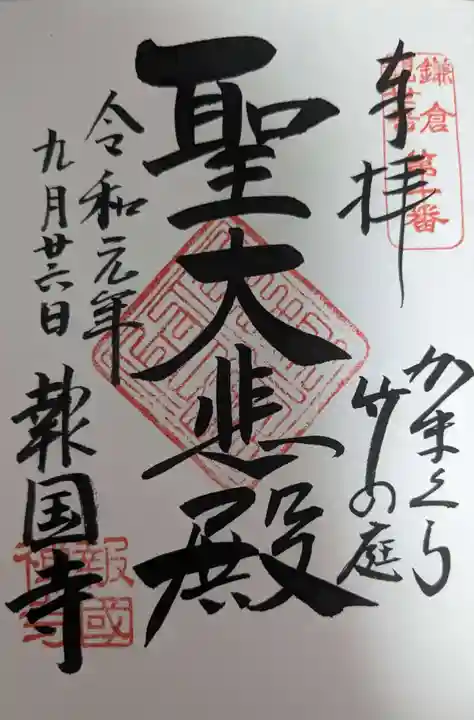 鎌倉
観音
第十番
奉拝
かまくら
竹の庭
聖大悲殿
令和元年
九月廿六日
報国寺
報國
禅寺